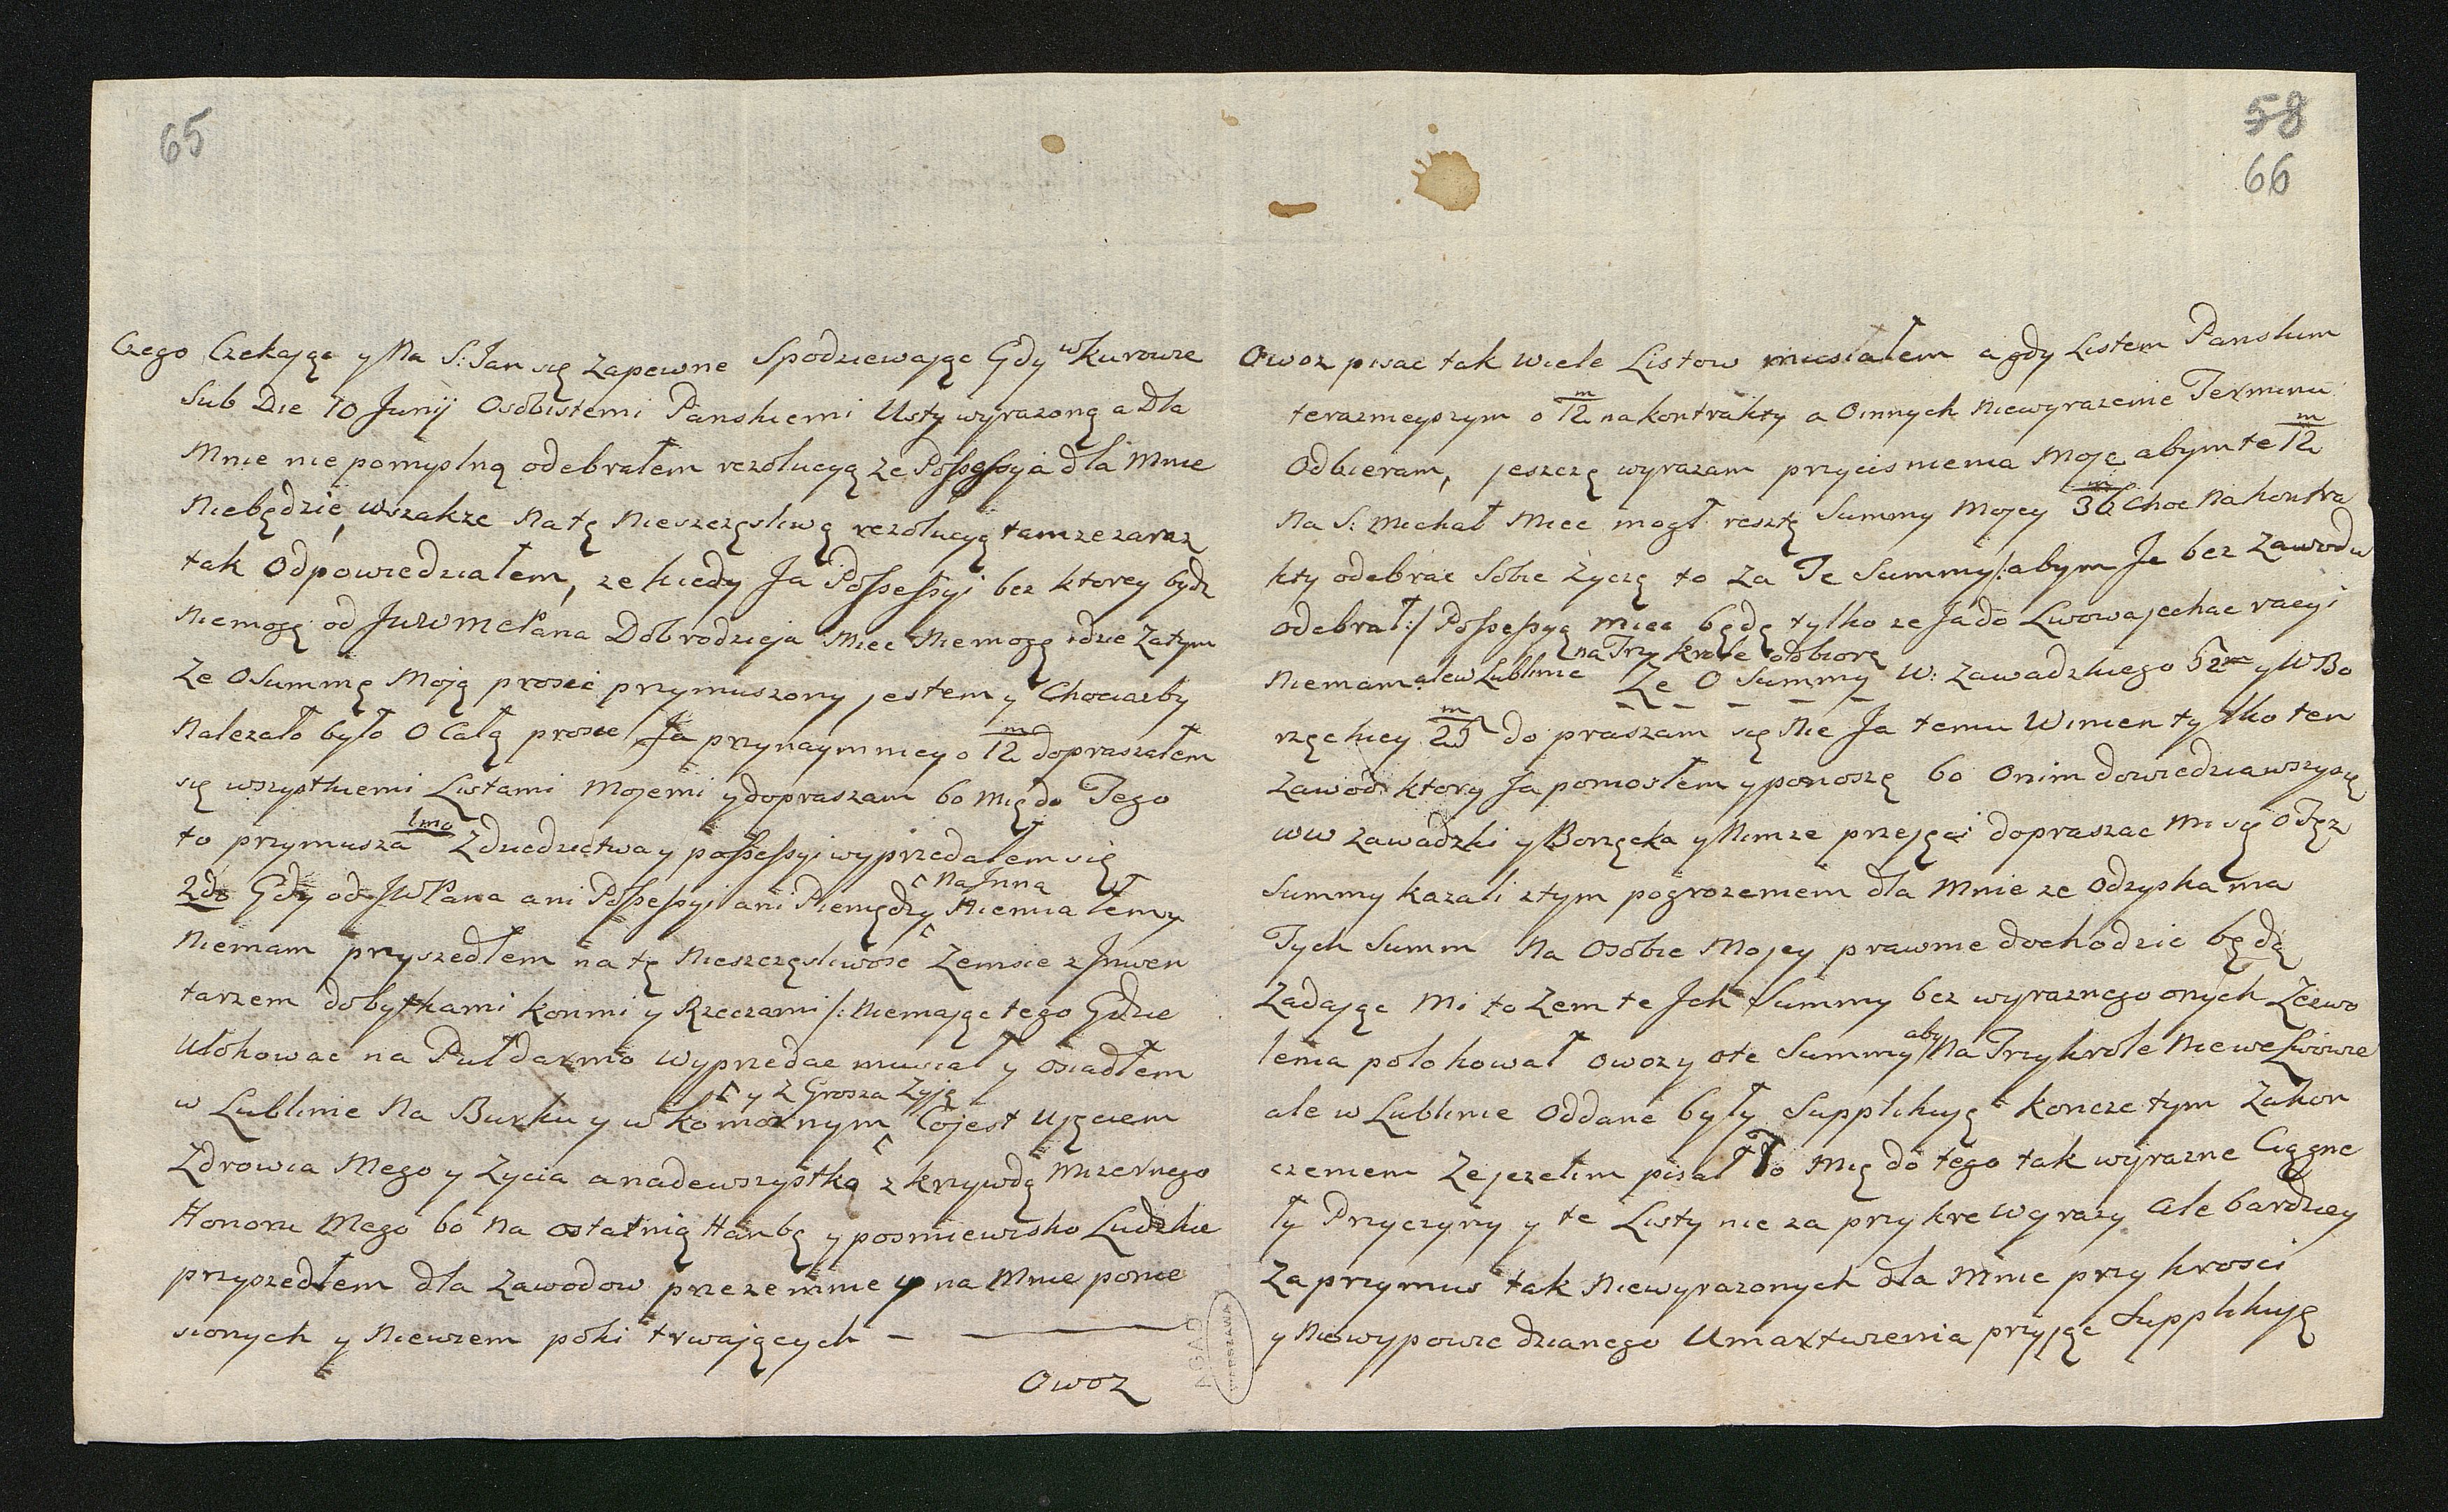 65
Czego Czekając y Na S: Jan się Zapewne Spodziewając Gdy w Kurowie
Sub Die 10 Junij Osobistemi Panskiemi Usty wyrazoną a Dla
Mnie nie pomyslną odebrałem rezolucyą ze Possessyja dla Mnie
Niebędzie, wszakze na tę Nieszczęsliwą rezolucyą tamze zaraz
tak Odpowiedziałem, ze kiedy Ja Possessyi bez ktorey bydz
niemogę od JWWMC Pana Dobrodzieja Miec Niemogę idzie Zatym
Ze O Summę Moją prosic przymuszony jestem y Chociazby
Nalezało było O Całą prosic Ja przynaymniey o 12 m dopraszałem
się wszystkiemi Listami Mojemi y dopraszam bo Mię do Tego
to przymusza 1mo Z dziedzictwa y possessyi wyprzedałem się
2do Gdy od JWPana ani Possessyi ani Pieniędzy na Inną Niemiałem y
Niemam przyszedłem na tę Nieszczęsliwosc Zemsie z Inwen
tarzem dobytkami konmi y Rzeczami /: Niemając tego Gdzie
Ulokowac na Puł darmo wyprzedac musiał y osiadłem
w Lublinie Na Burku y w komornym y Z Grosza Zyję Cojest Ujęciem
Zdrowia Mego y Zycia a nadewszystko z krzywdą Mizernego
Honoru Mego bo Na ostatnią Hanbę y posmiewisko Ludzkie
przyszedłem dla Zawodow przezemnie y na Mnie ponie
sionych y Niewiem poki trwających —
Owoz
58
66
Owoz pisac tak wiele Listow musiałem a gdy Listem Panskim
terazmeyszym o 12 m na kontrakty a O innych Niewyrazenie Terminu
Odbieram, jeszczę wyrazam przycisnienia Moje abym te 12 m
Na S: Michał Miec mogł resztę Summy Mojey 36 m Choc Na kontra
kty odebrac Sobie Zyczę to Za Te Summy /: abym Je bez Zawodu
odebrał :/ Possessyą miec będę tylko ze Ja do Lwowa jechac racyi
Niemam ale w Lublinie na Trzy krole odbiorę Ze O Summy W: Zawadzkiego 52 m y W Bo
rzęckiey 25 m do praszam się Nie Ja temu Winien tylko ten
Zawod ktory Ja poniosłem y ponoszę bo O nim dowiedziawszy się
WW Zawadzki y Borzęcka y Nimze przejęci dopraszac Mi się o Tęz
Summy kazali z tym pogrozeniem dla Mnie ze Odzyskania
Tych Summ Na Osobie Mojey prawnie dochodzic będą
Zadając Mi to Zem te Ich Summy bez wyraznego onych Zezwo
lenia polokował owoz y o te Summy aby Na Trzy krole Nie we Lwowie
ale w Lublinie Oddane były Supplikuję koncze tym Zakon
czeniem Ze jezelim pisał To Mię do tego tak wyrazne Ciągnę
ły Przyczyny y te Listy nie za przykre Wyrazy Ale bardziey
Za przymus tak Niewyrazonych dla Mnie przykrosci
y Niewypowiedzianego Umartwienia przyjąc Supplikuję
AGAD
WARSZAWA